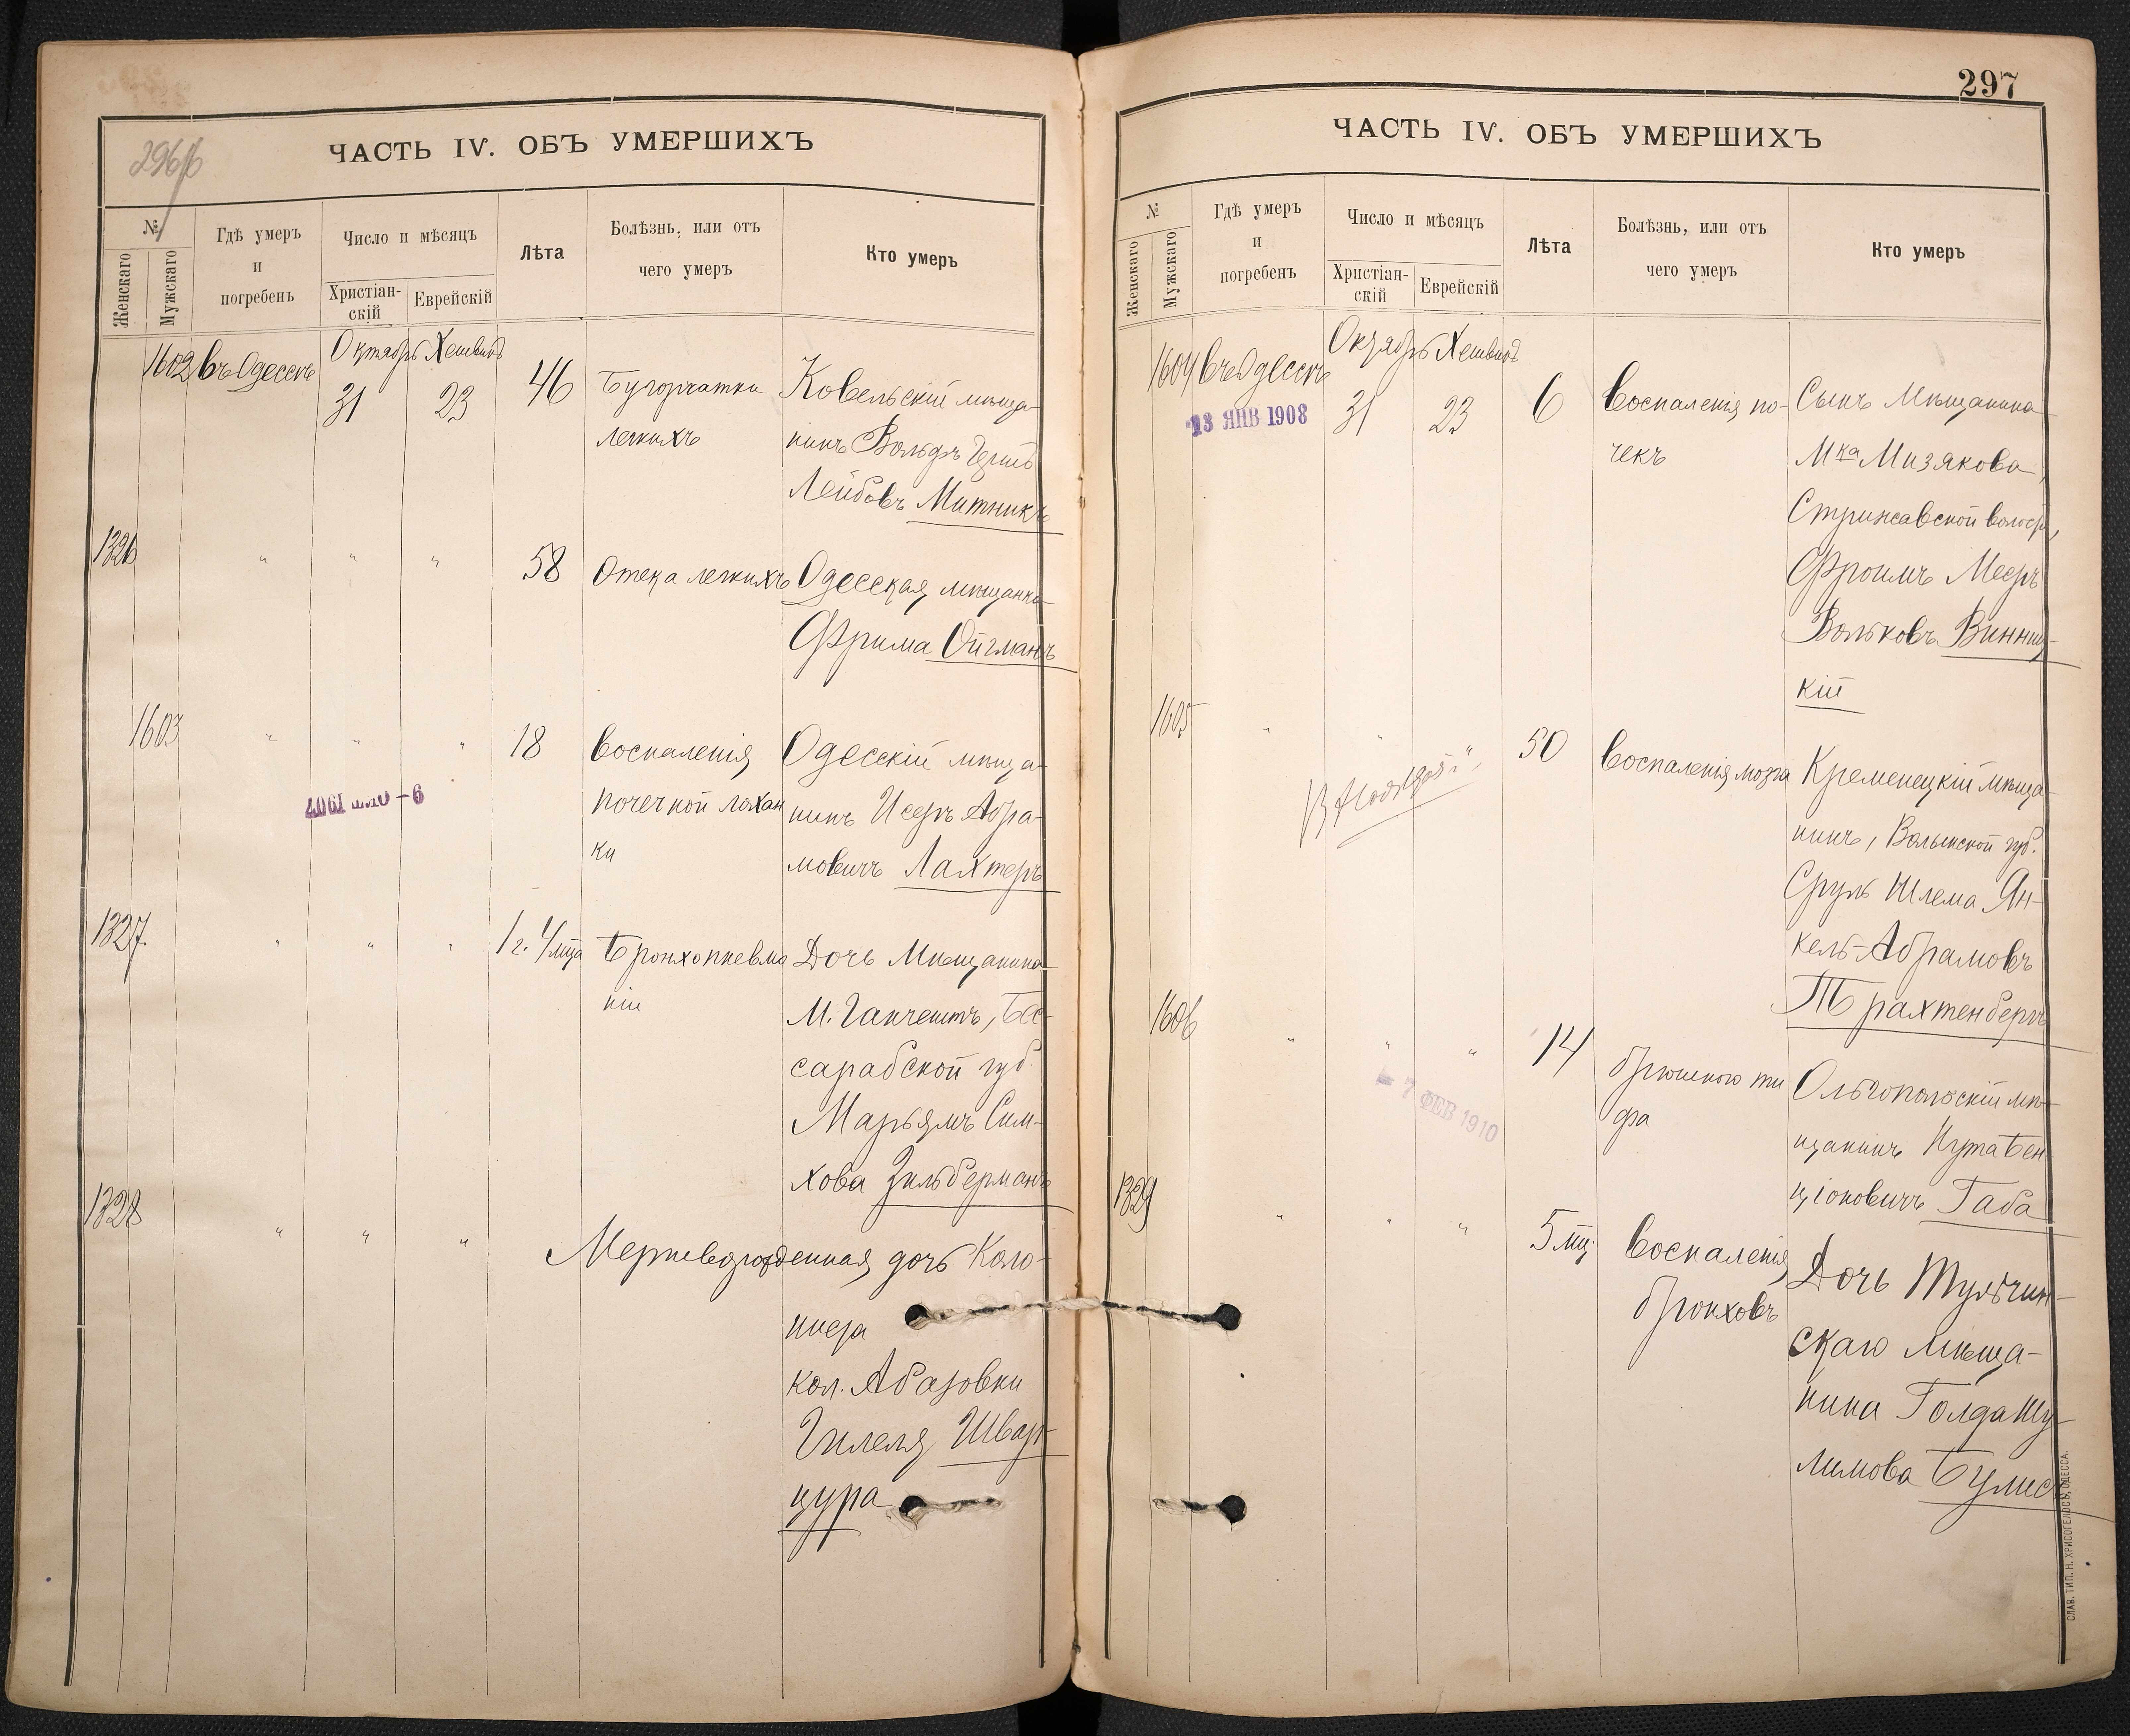 296 об
ЧАСТЬ IV. ОБЪ УМЕРШИХЪ
№
Женскаго
Мужскаго
Гдѣ умеръ
и
погребенъ
Число и мѣсяцъ
Христіан-
скій
Еврейскій
Лѣта
Болѣзнь, или отъ
чего умеръ
Кто умеръ
1602 въ Одессѣ Октябрь Хешвонъ
31 23 46 Бугорчатки Ковельскій мѣща-
легкихъ нинъ Вольфъ Гершъ
Лейбовъ Митникъ
1326 " " " 58 Отека легкихъ Одесская мѣщанка
Фрима Ойгманъ
1603 " " " 18 Воспаленія Одесскій мѣща-
почечной лохан нинъ Исеръ Абра-
ки мовичъ Лахтеръ
6-ОКТ 1907
1327. " " " 1 г. 4 мца Бронхопневмо Дочь Мѣщанина
ніи М. Ганчештъ, Бес-
сарабской губ.
Марьямъ Сим-
хова Зильберманъ
1328 " " " Мертворожденная дочь Коло-
ниста
кол. Абазовки
Гилеля Швар-
цура
297
ЧАСТЬ IV. ОБЪ УМЕРШИХЪ
№
Женскаго
Мужскаго
Гдѣ умеръ
и
погребенъ
Число и мѣсяцъ
Христіан-
скій
Еврейскій
Лѣта
Болѣзнь, или отъ
чего умеръ
Кто умеръ
1604 въ Одессѣ Октябрь Хешвонъ
31 23 6 Воспаленія по- Сынъ Мѣщанина
13 ЯНВ 1908
чекъ Мка Мизякова,
Стрижавской волости,
Фроимъ Мееръ
Вольковъ Винниц-
кій
1605 " " " 50 Воспаленія мозга Кременецкій мѣща-
нинъ, Волынской губ.
Сруль Шлема Ян-
кель-Абрамовъ
Трахтенбергъ
1606 " " " 14 брюшного ти Ольгопольскій мѣ-
фа щанинъ Нута Бен
ціоновичъ Габа
- 7 ФЕВ 1910
1329 " " " 5 мц. Воспаленія Дочь Тульчин-
бронховъ скаго мѣща-
нина Голда Шу-
лимова Булис
СЛАВ. ТИП. Н. ХРИСОГЕЛОСЪ, ОДЕССА.